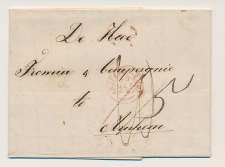 De Heer
Fromein & Compagnie
te
Arnhem